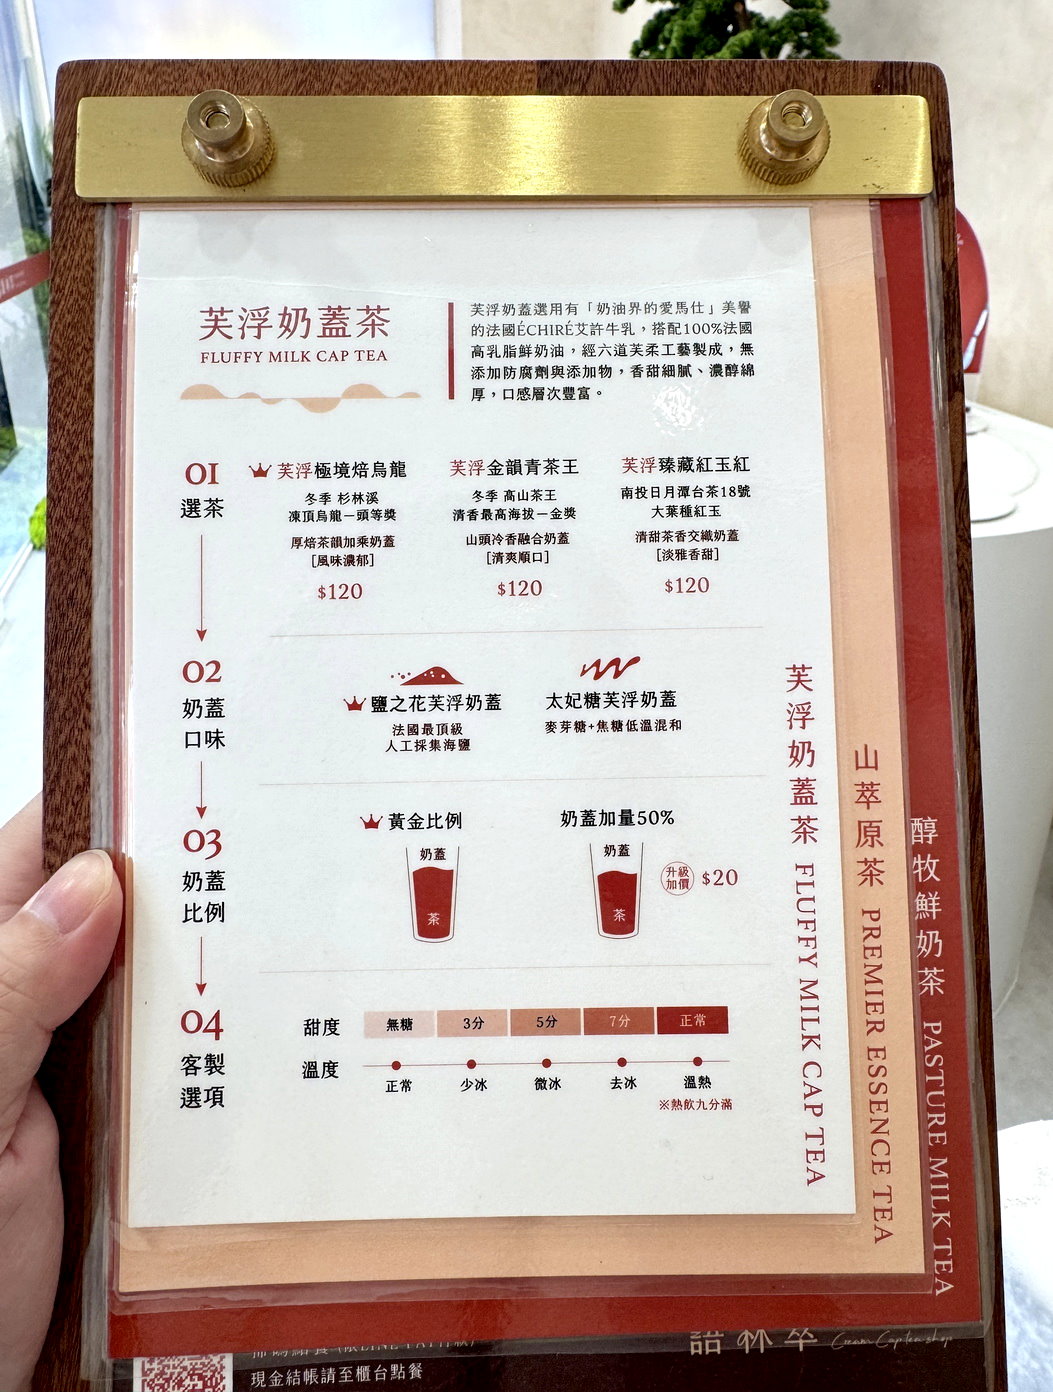 芙浮奶蓋茶
FLUFFY MILK CAP TEA
芙浮奶蓋選用有「奶油界的愛馬仕」美譽
的法國ÉCHIRÉ艾許牛乳，搭配100%法國
高乳脂鮮奶油，經六道芙柔工藝製成，無
添加防腐劑與添加物，香甜細膩、濃醇綿
厚，口感層次豐富。
01
選茶
芙浮極境焙烏龍
冬季 杉林溪
凍頂烏龍－頭等獎
厚焙茶韻加乘奶蓋
[風味濃郁]
$120
芙浮金韻青茶王
冬季 高山茶王
清香最高海拔－金獎
山頭冷香融合奶蓋
[清爽順口]
$120
芙浮臻藏紅玉紅
南投日月潭台茶18號
大葉種紅玉
清甜茶香交織奶蓋
[淡雅香甜]
$120
02
奶蓋
口味
鹽之花芙浮奶蓋
法國最頂級
人工採集海鹽
太妃糖芙浮奶蓋
麥芽糖+焦糖低溫混和
03
奶蓋
比例
黃金比例
奶蓋
茶
奶蓋加量50%
奶蓋
茶
升級
加價
$20
04
客製
選項
甜度
無糖 3分 5分 7分 正常
溫度
正常 少冰 微冰 去冰 溫熱
※熱飲九分滿
芙浮奶蓋茶 FLUFFY MILK CAP TEA
山萃原茶 PREMIER ESSENCE TEA
醇牧鮮奶茶 PASTURE MILK TEA
Cream Cap tea shop
現金結帳請至櫃台點餐